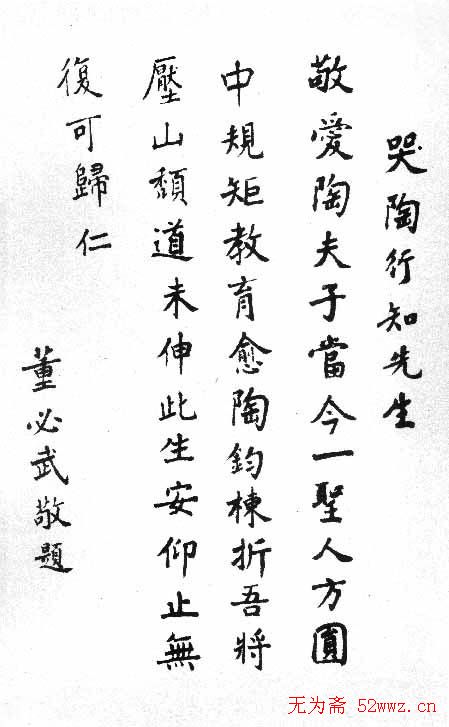 哭陶行知先生
敬愛陶夫子當今一聖人方圓
中規矩教育愈陶鈞棟折吾將
壓山頹道未伸此生安仰止無
復可歸仁
董必武敬題
无为斋 52wwz.cn